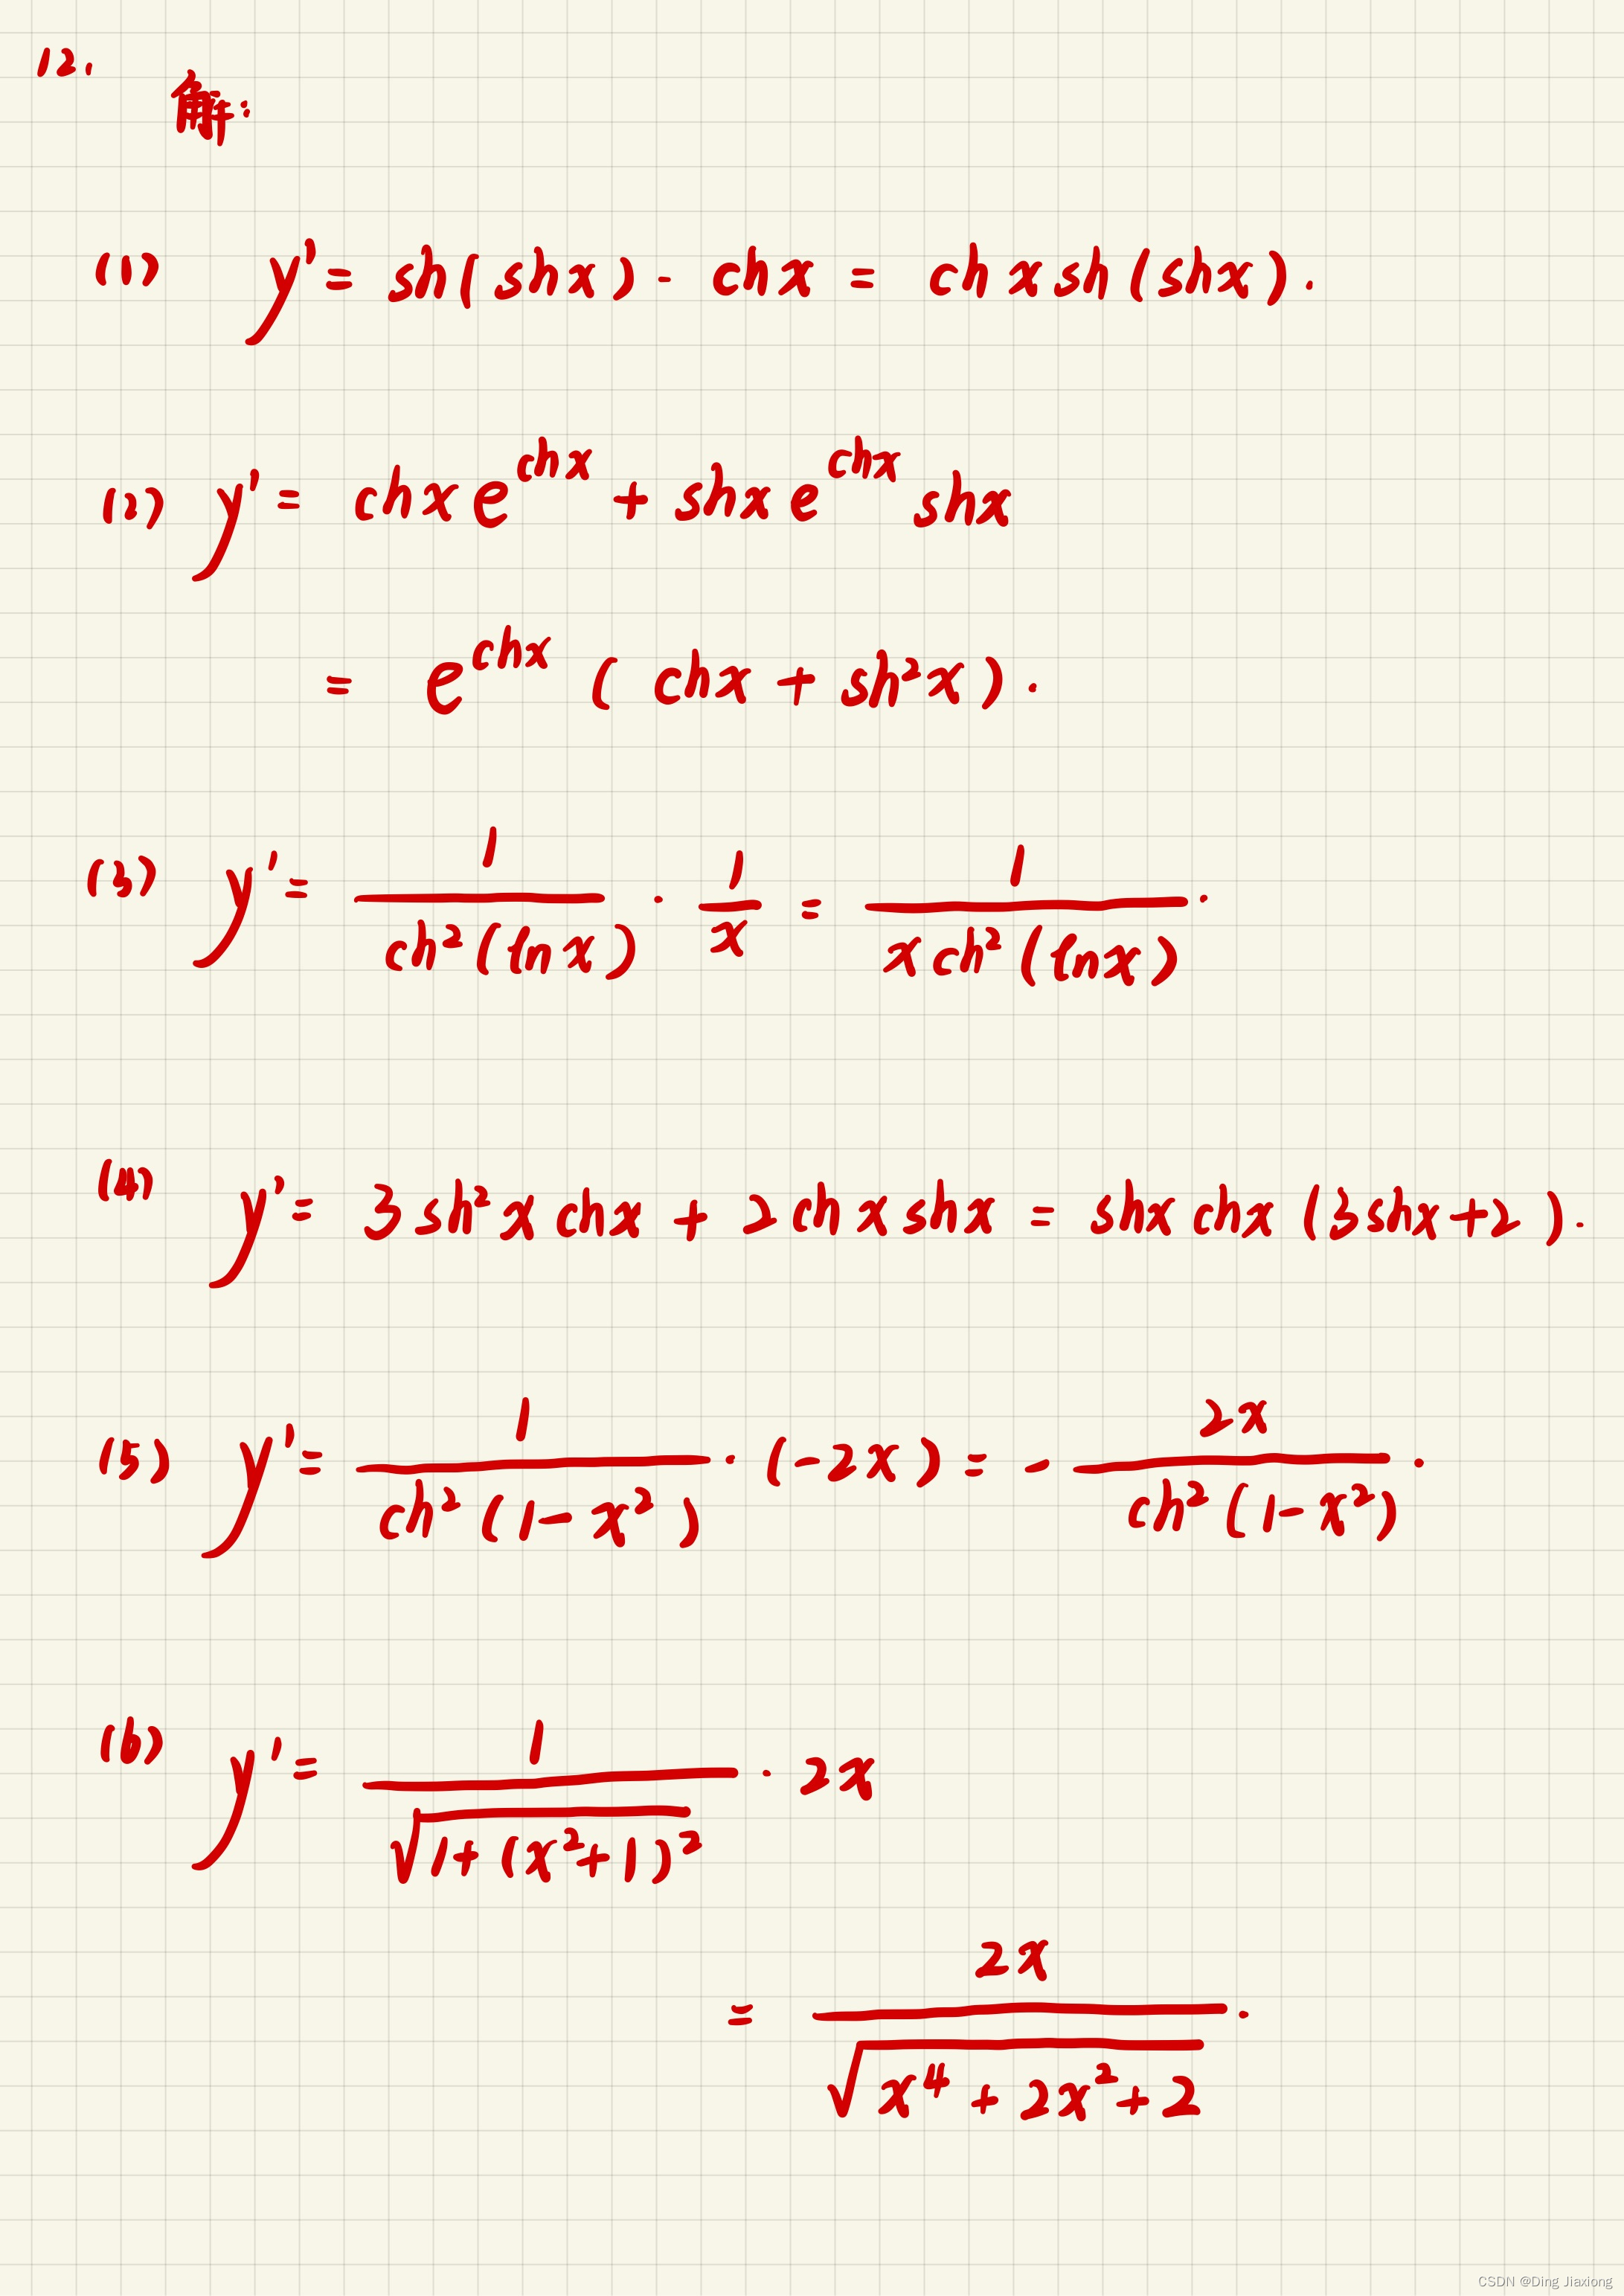 12.
解:
(1) y' = sh(shx) · chx = chxsh(shx).
(2) y' = chxe^{chx} + shxe^{chx}shx
= e^{chx}(chx + sh²x).
(3) y' = \frac{1}{ch²(lnx)} · \frac{1}{x} = \frac{1}{xch²(lnx)}.
(4) y' = 3sh²xchx + 2chxshx = shxchx(3shx+2).
(5) y' = \frac{1}{ch²(1-x²)} · (-2x) = -\frac{2x}{ch²(1-x²)}.
(6) y' = \frac{1}{\sqrt{1+(x²+1)²}} · 2x
= \frac{2x}{\sqrt{x⁴+2x²+2}}.
CSDN @Ding Jiaxiong